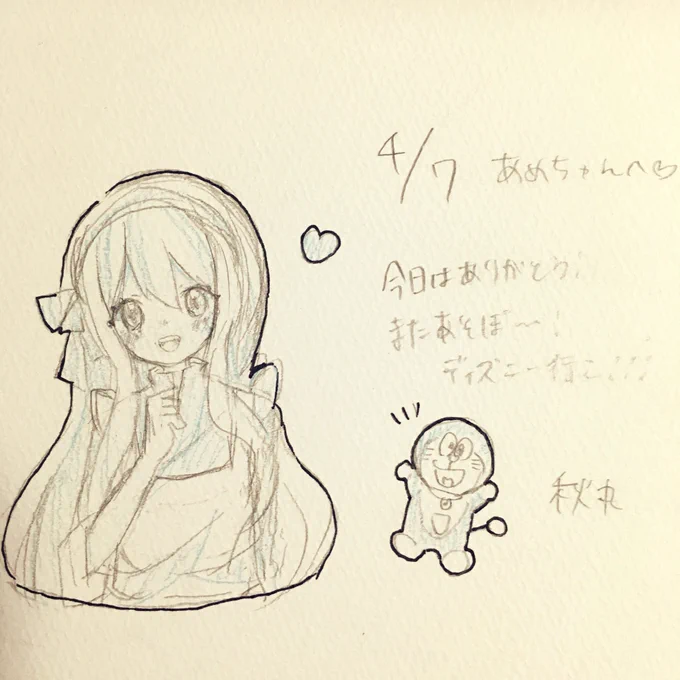 4/7 あめちゃんへ♡
今日はありがとう!
またあそぼ〜!
ディズニー行こ!!!
秋丸